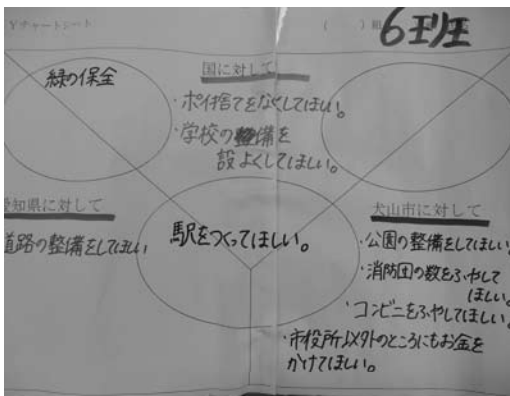 Yチャートシート
( ) 組 6班
緑の保全
国に対して
・ポイ捨てをなくしてほしい。
・学校の整備を
設よくしてほしい。
愛知県に対して
道路の整備をしてほしい
駅をつくってほしい。
犬山市に対して
・公園の整備をしてほしい
・消防団の数をふやして
ほしい。
・コンビニをふやしてほしい。
・市役所以外のところにもお金を
かけてほしい。